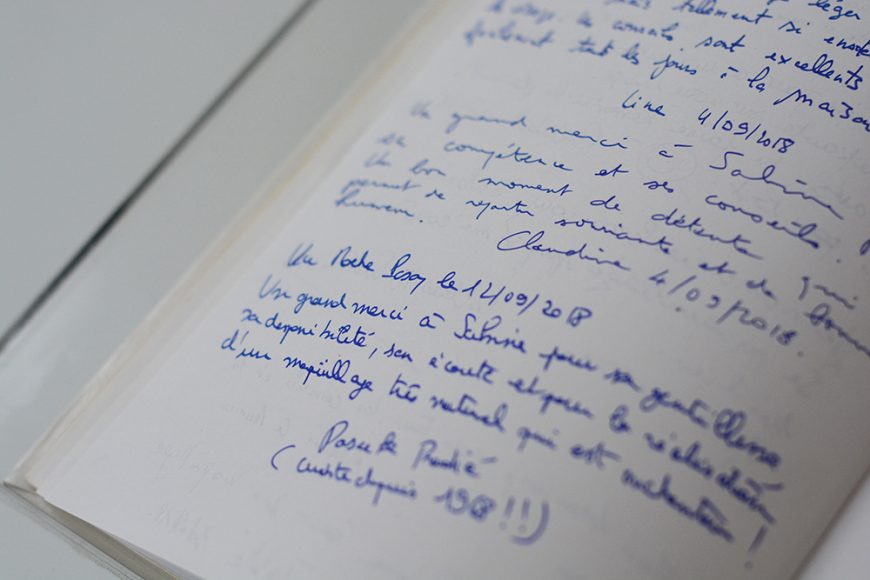 léger
tellement si
conseils sont excellents
facilement tous les jours à la maison
Line 4/09/2018
Un grand merci à Sabine
sa compétence et ses conseils.
Un bon moment de détente qui
permet de repartir souriante et de bonne
humeur.
Claudine 4/09/2018.
La Roche Posay le 12/09/2018
Un grand merci à Sabine pour sa gentillesse
sa disponibilité, son écoute et pour la réalisation
d'un maquillage très naturel qui est
(
depuis 19 !!)